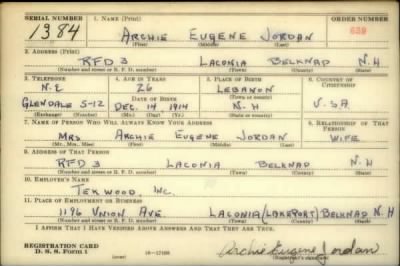 SERIAL NUMBER 1. NAME (Print) ORDER NUMBER
1384 ARCHIE EUGENE JORDAN 639
(First) (Middle) (Last)
2. ADDRESS (Print)
RFD 3 LACONIA BELKNAP N.H
(Number and street or R. F. D. number) (Town) (County) (State)
3. TELEPHONE 4. AGE IN YEARS 5. PLACE OF BIRTH 6. COUNTRY OF CITIZENSHIP
N.E 26 LEBANON
DATE OF BIRTH (Town or county)
GLENDALE 5-12 DEC. 14, 1914 N.H U.SA
(Exchange) (Number) (Mo.) (Day) (Yr.) (State or country)
7. NAME OF PERSON WHO WILL ALWAYS KNOW YOUR ADDRESS 8. RELATIONSHIP OF THAT PERSON
MRS ARCHIE EUGENE JORDAN WIFE
(Mr., Mrs., Miss) (First) (Middle) (Last)
9. ADDRESS OF THAT PERSON
RFD 3 LACONIA BELKNAP N.H
(Number and street or R. F. D. number) (Town) (County) (State)
10. EMPLOYER'S NAME
TEKWOOD, INC.
11. PLACE OF EMPLOYMENT OR BUSINESS
1196 UNION AVE LACONIA (LAKEPORT) BELKNAP N.H
(Number and street or R. F. D. number) (Town) (County) (State)
I AFFIRM THAT I HAVE VERIFIED ABOVE ANSWERS AND THAT THEY ARE TRUE.
REGISTRATION CARD
D. S. S. Form 1 (over) Archie Eugene Jordan
(Registrant's signature)